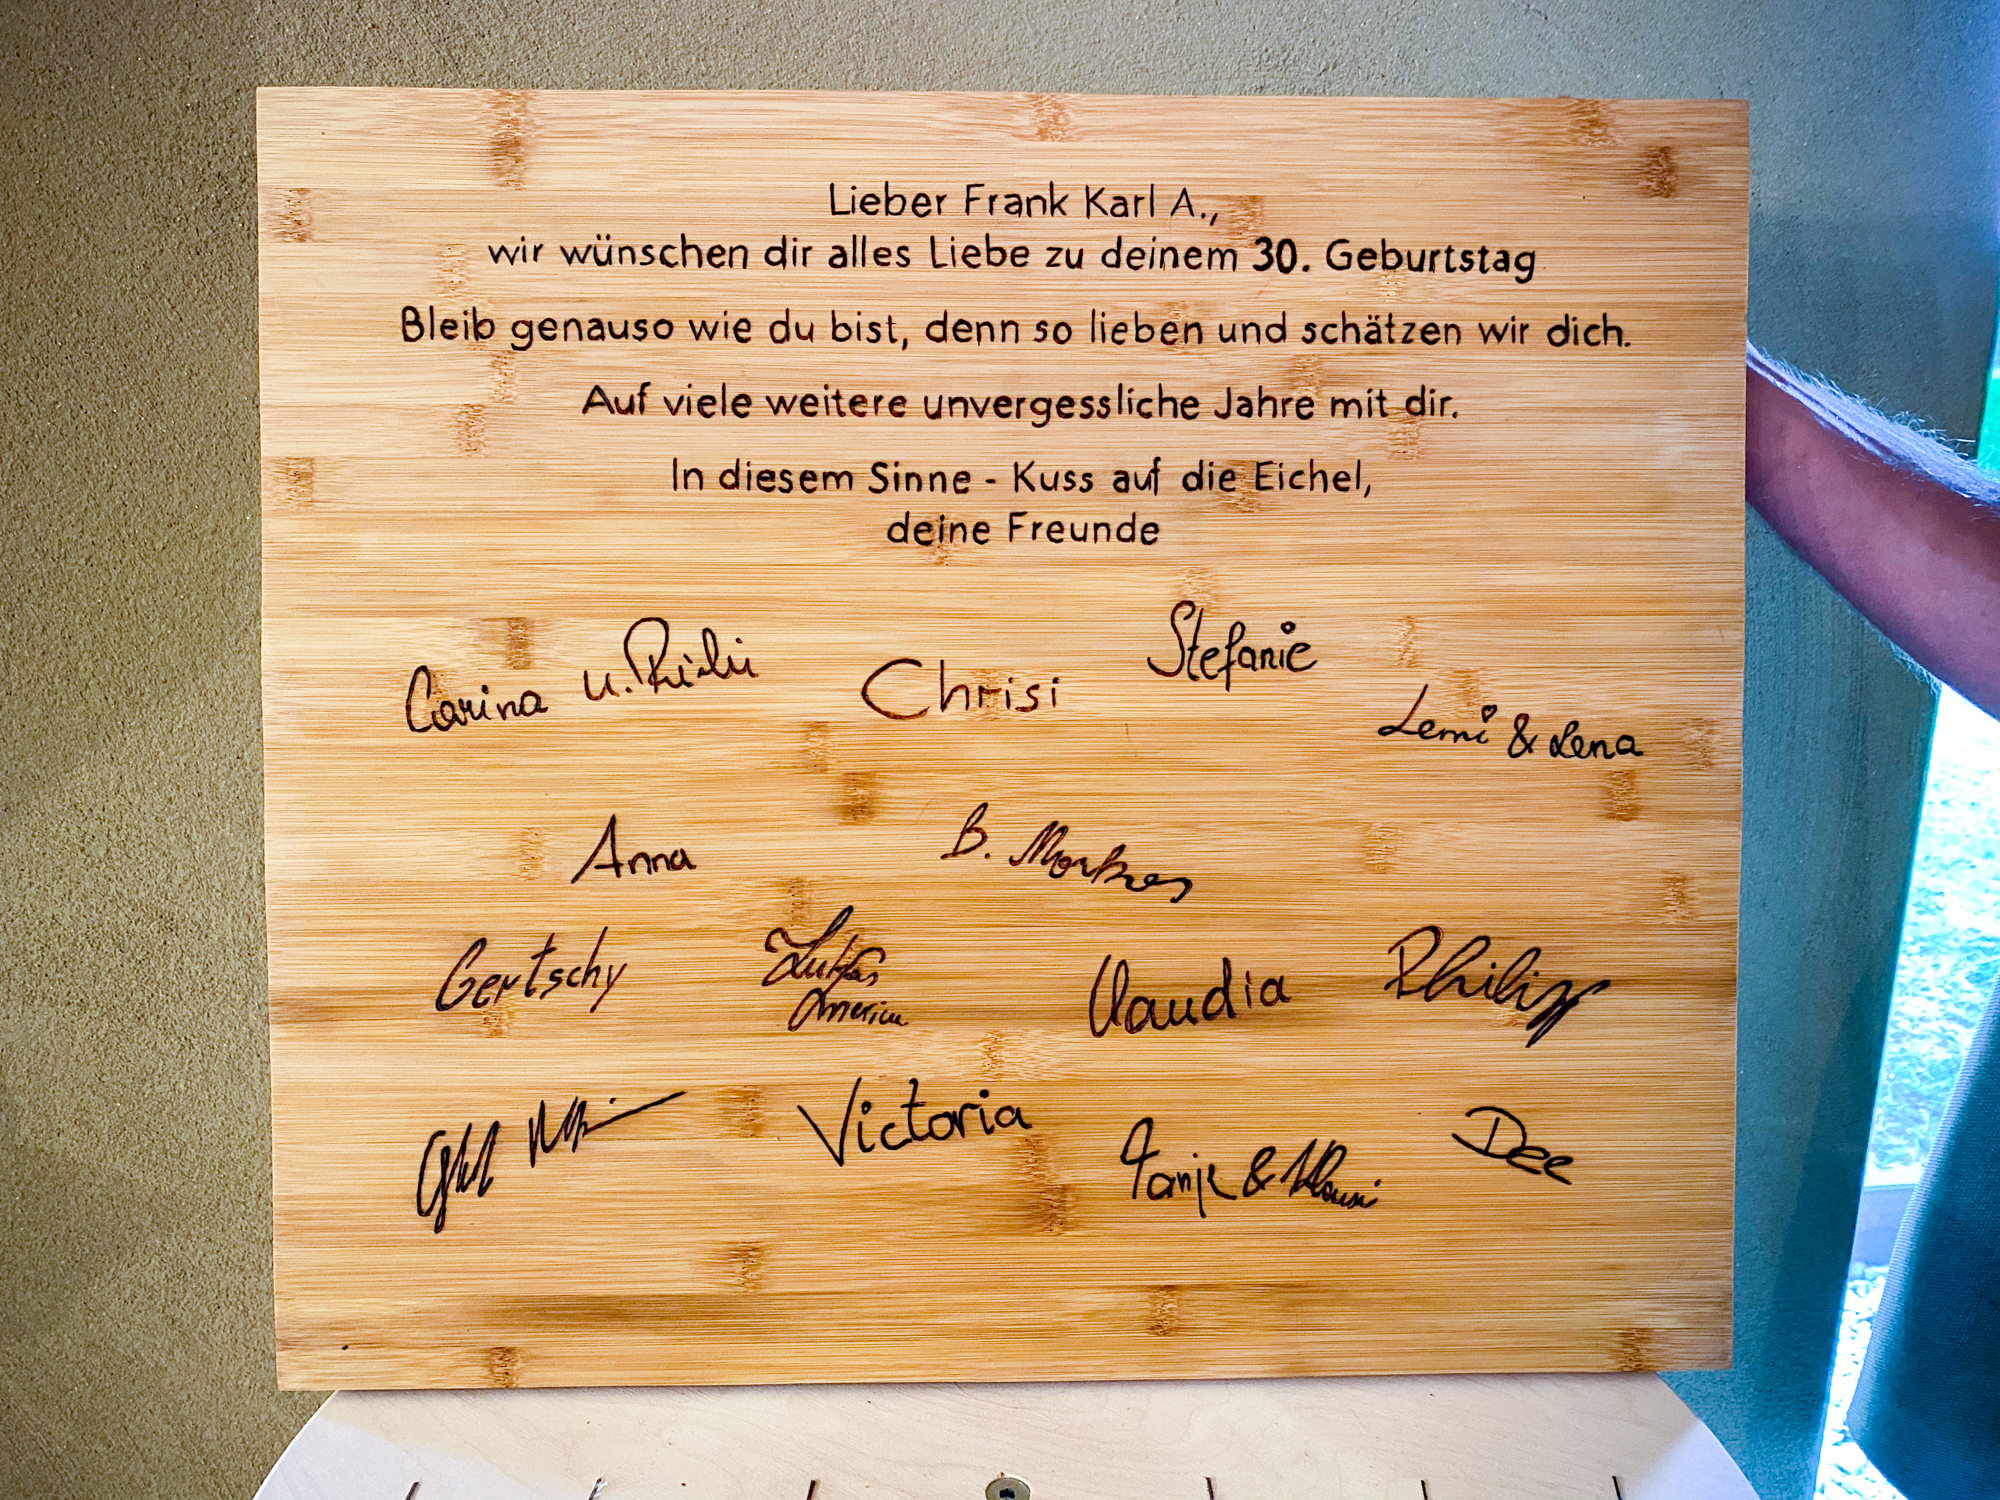 Lieber Frank Karl A.,
wir wünschen dir alles Liebe zu deinem 30. Geburtstag
Bleib genauso wie du bist, denn so lieben und schätzen wir dich.
Auf viele weitere unvergessliche Jahre mit dir.
In diesem Sinne - Kuss auf die Eichel,
deine Freunde
Carina u.
Chrisi
Stefanie
Lemi & Lena
Anna
B.
Gertschy
Lukas
Claudia
Philipp
Victoria
Tanja & Klausi
Dee